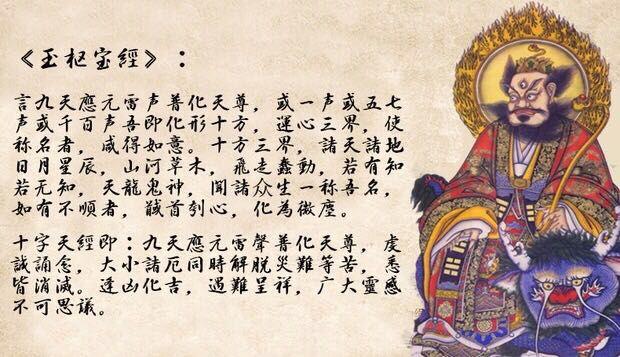 《玉枢宝經》：
言九天應元雷声普化天尊，或一声或五七
声或千百声吾即化形十方，運心三界，使
称名者，咸得如意。十方三界，諸天諸地
日月星辰，山河草木，飛走蠢動，若有知
若无知，天龍鬼神，聞諸众生一称吾名，
如有不順者，馘首刳心，化為微塵。
十字天經即：九天應元雷聲普化天尊，虔
誠誦念，大小諸厄同時解脱災難等苦，悉
皆消減。逢凶化吉，遇難呈祥，广大靈感
不可思議。